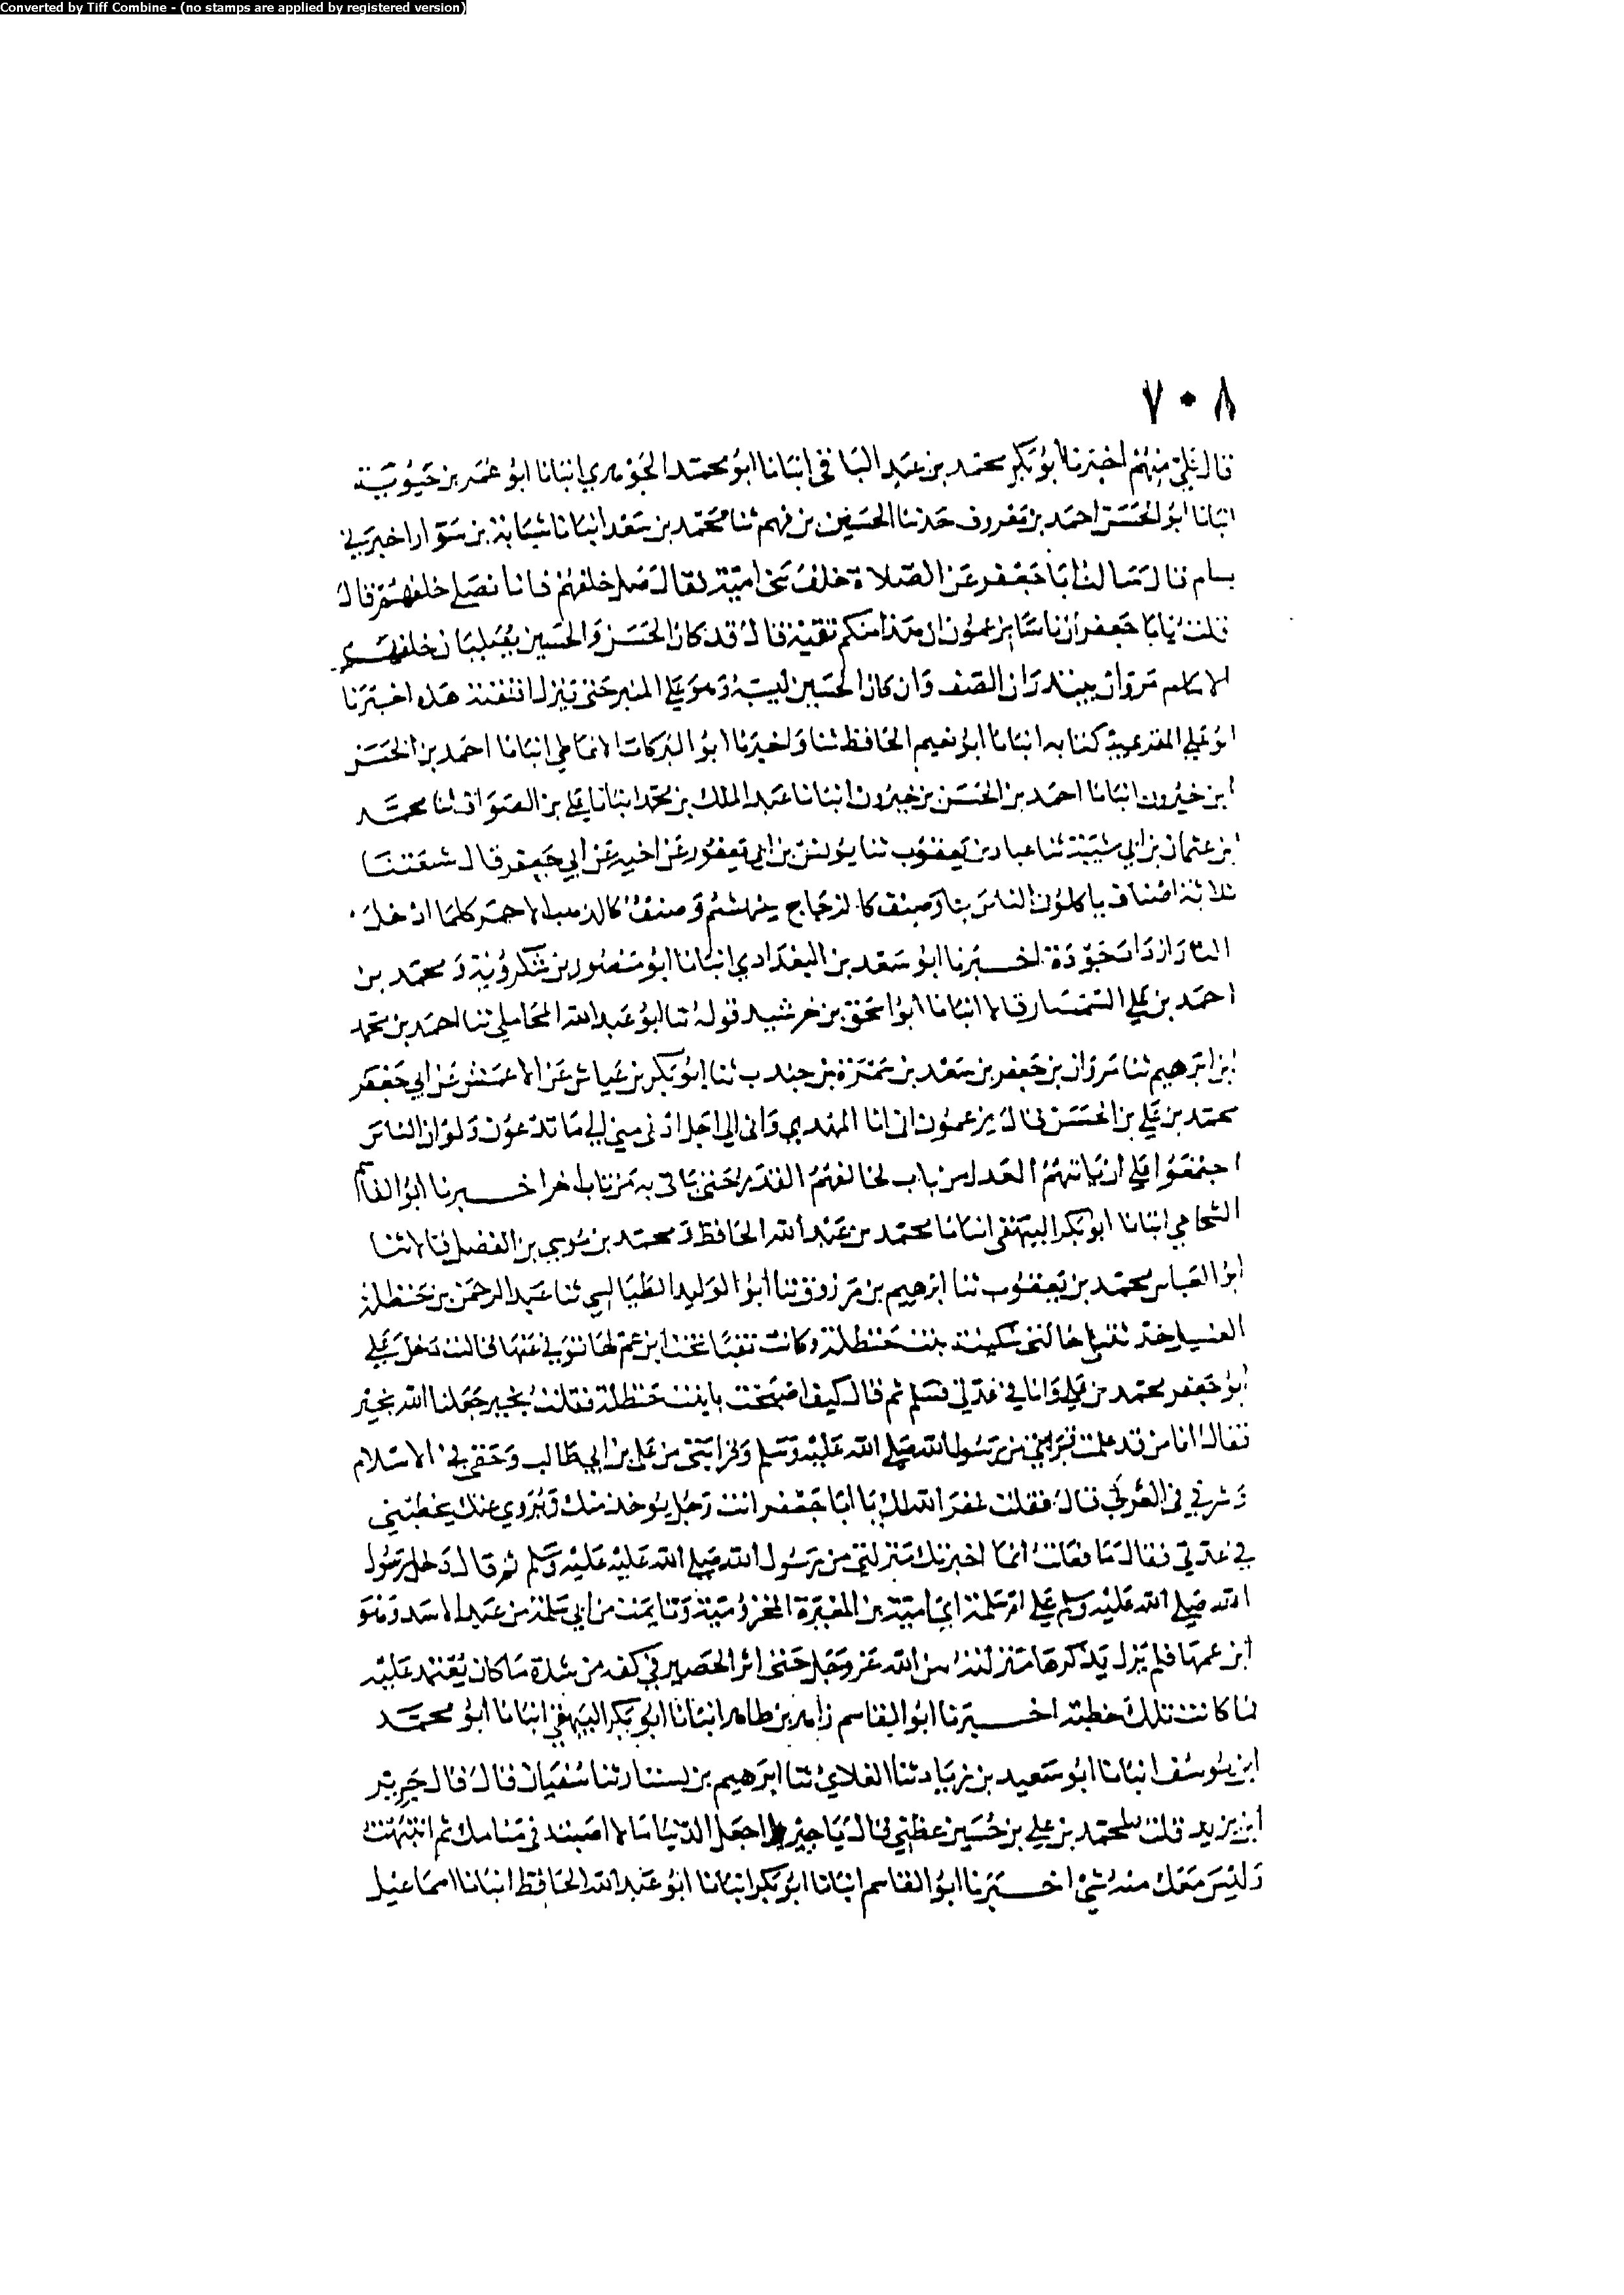 Converted by Tiff Combine - (no stamps are applied by registered version)
٧٠٨
قال علي منهم اخبرنا ابو بكر محمد بن عبد الباقي انبانا ابو محمد الجوهري انبانا ابو عمر بن حيوية
انبانا ابو الحسن احمد بن معروف حدثنا الحسين بن فهم ثنا محمد بن سعد انبانا شبابة بن سوار اخبرني
بسام قال سالت ابا جعفر عن الصلاة خلف بني امية فقال صل خلفهم فانا نصلي خلفهم قال
قلت يابا جعفر ان ناسا يزعمون ان هذا منكم تقية قال قد كان الحسن والحسين يصليان خلف
مروان يبتدران الصف وان كان الحسين ليسبه وهو على المنبر حتى ينزل افتقية هذه اخبرنا
ابو علي المقري في كتابه انبانا ابو نعيم الحافظ ثنا واخبرنا ابو البركات الانماطي انبانا احمد بن الحسن
ابن خيرون انبانا احمد بن الحسن بن خيرون انبانا عبد الملك بن محمد انبانا علي بن الصواف ثنا محمد
بن عثمان بن ابي شيبة ثنا عباد بن يعقوب ثنا يونس بن ابي يعفور عن اخيه عن ابي جعفر قال شيعتنا
ثلاثة اصناف ياكلون الناس بنا وصنف كالزجاج ينهشم وصنف كالذهب الاحمر كلما ادخل
النار ازداد جودة اخبرنا ابو سعد بن البغدادي انبانا ابو منصور بن شكروية ومحمد بن
احمد بن علي السمسار قالا انبانا ابو اسحق بن خرشيد قوله ثنا ابو عبد الله المحاملي ثنا احمد بن محمد
ابن ابرهيم ثنا مروان بن جعفر بن سعد بن سمرة بن جندب ثنا ابو بكر بن عياش عن الاعمش عن ابي جعفر
محمد بن علي بن الحسن قال يزعمون اني انا المهدي واني الى اجل ادنى مني الى ما تدعون ولو ان الناس
اجتمعوا على ان ياتيهم العدل من باب لخالفهم القدر حتى ياتي به من باب اخر اخبرنا ابو القاسم
الشحامي انبانا ابو بكر البيهقي انبانا محمد بن عبد الله الحافظ ومحمد بن موسي بن الفضل قالا ثنا
ابو العباس محمد بن يعقوب ثنا ابرهيم بن مرزوق ثنا ابو الوليد الطيالسي ثنا عبد الرحمن بن حنظلة
الغسيل حدثتني خالتي سكينة بنت حنظلة وكانت تقبا تحت ابن عم لها توفي عنها قالت دخل علي
ابو جعفر محمد بن علي وانا في عدتي فسلم ثم قال كيف اصبحت يابنت حنظلة فقلت بخير جعلنا الله بخير
فقال انا من قد علمت قرابتي من رسول الله صلى الله عليه وسلم وقرابتي من علي بن ابي طالب وحقي في الاسلام
وشرفي في العرب قال فقلت غفر الله لك يا ابا جعفر انت رجل يوخذ منك ويروي عنك يخطبني
في عدتي فقال ما فعلت انما اخبرتك منزلتي من رسول الله صلى الله عليه عليه وسلم ثم قال دخل رسول
الله صلى الله عليه وسلم على ام سلمة ابي امية بن المغيرة المخزومية وتايمت من ابي سلمة من عبد الاسد وهو
ابن عمها فلم يزل يذكرها منزلته من الله عز وجل حتى اثر الحصير في كفه من شدة ما كان يعتمد عليه
فما كانت تلك خطبة اخبرنا ابو القاسم زاهر بن طاهر انبانا ابو بكر البيهقي انبانا ابو محمد
ابن يوسف انبانا ابو سعيد بن زياد ثنا الغلابي ثنا ابرهيم بن بستار ثنا سفيان قال قال جرير
ابن يزيد قلت لمحمد بن علي بن حسين عظني قال يا جرير اجعل الدنيا مالا اصبته في منامك ثم انتبهت
وليس معك منه شي اخبرنا ابو القاسم انبانا ابو بكر انبانا ابو عبد الله الحافظ انبانا اسماعيل